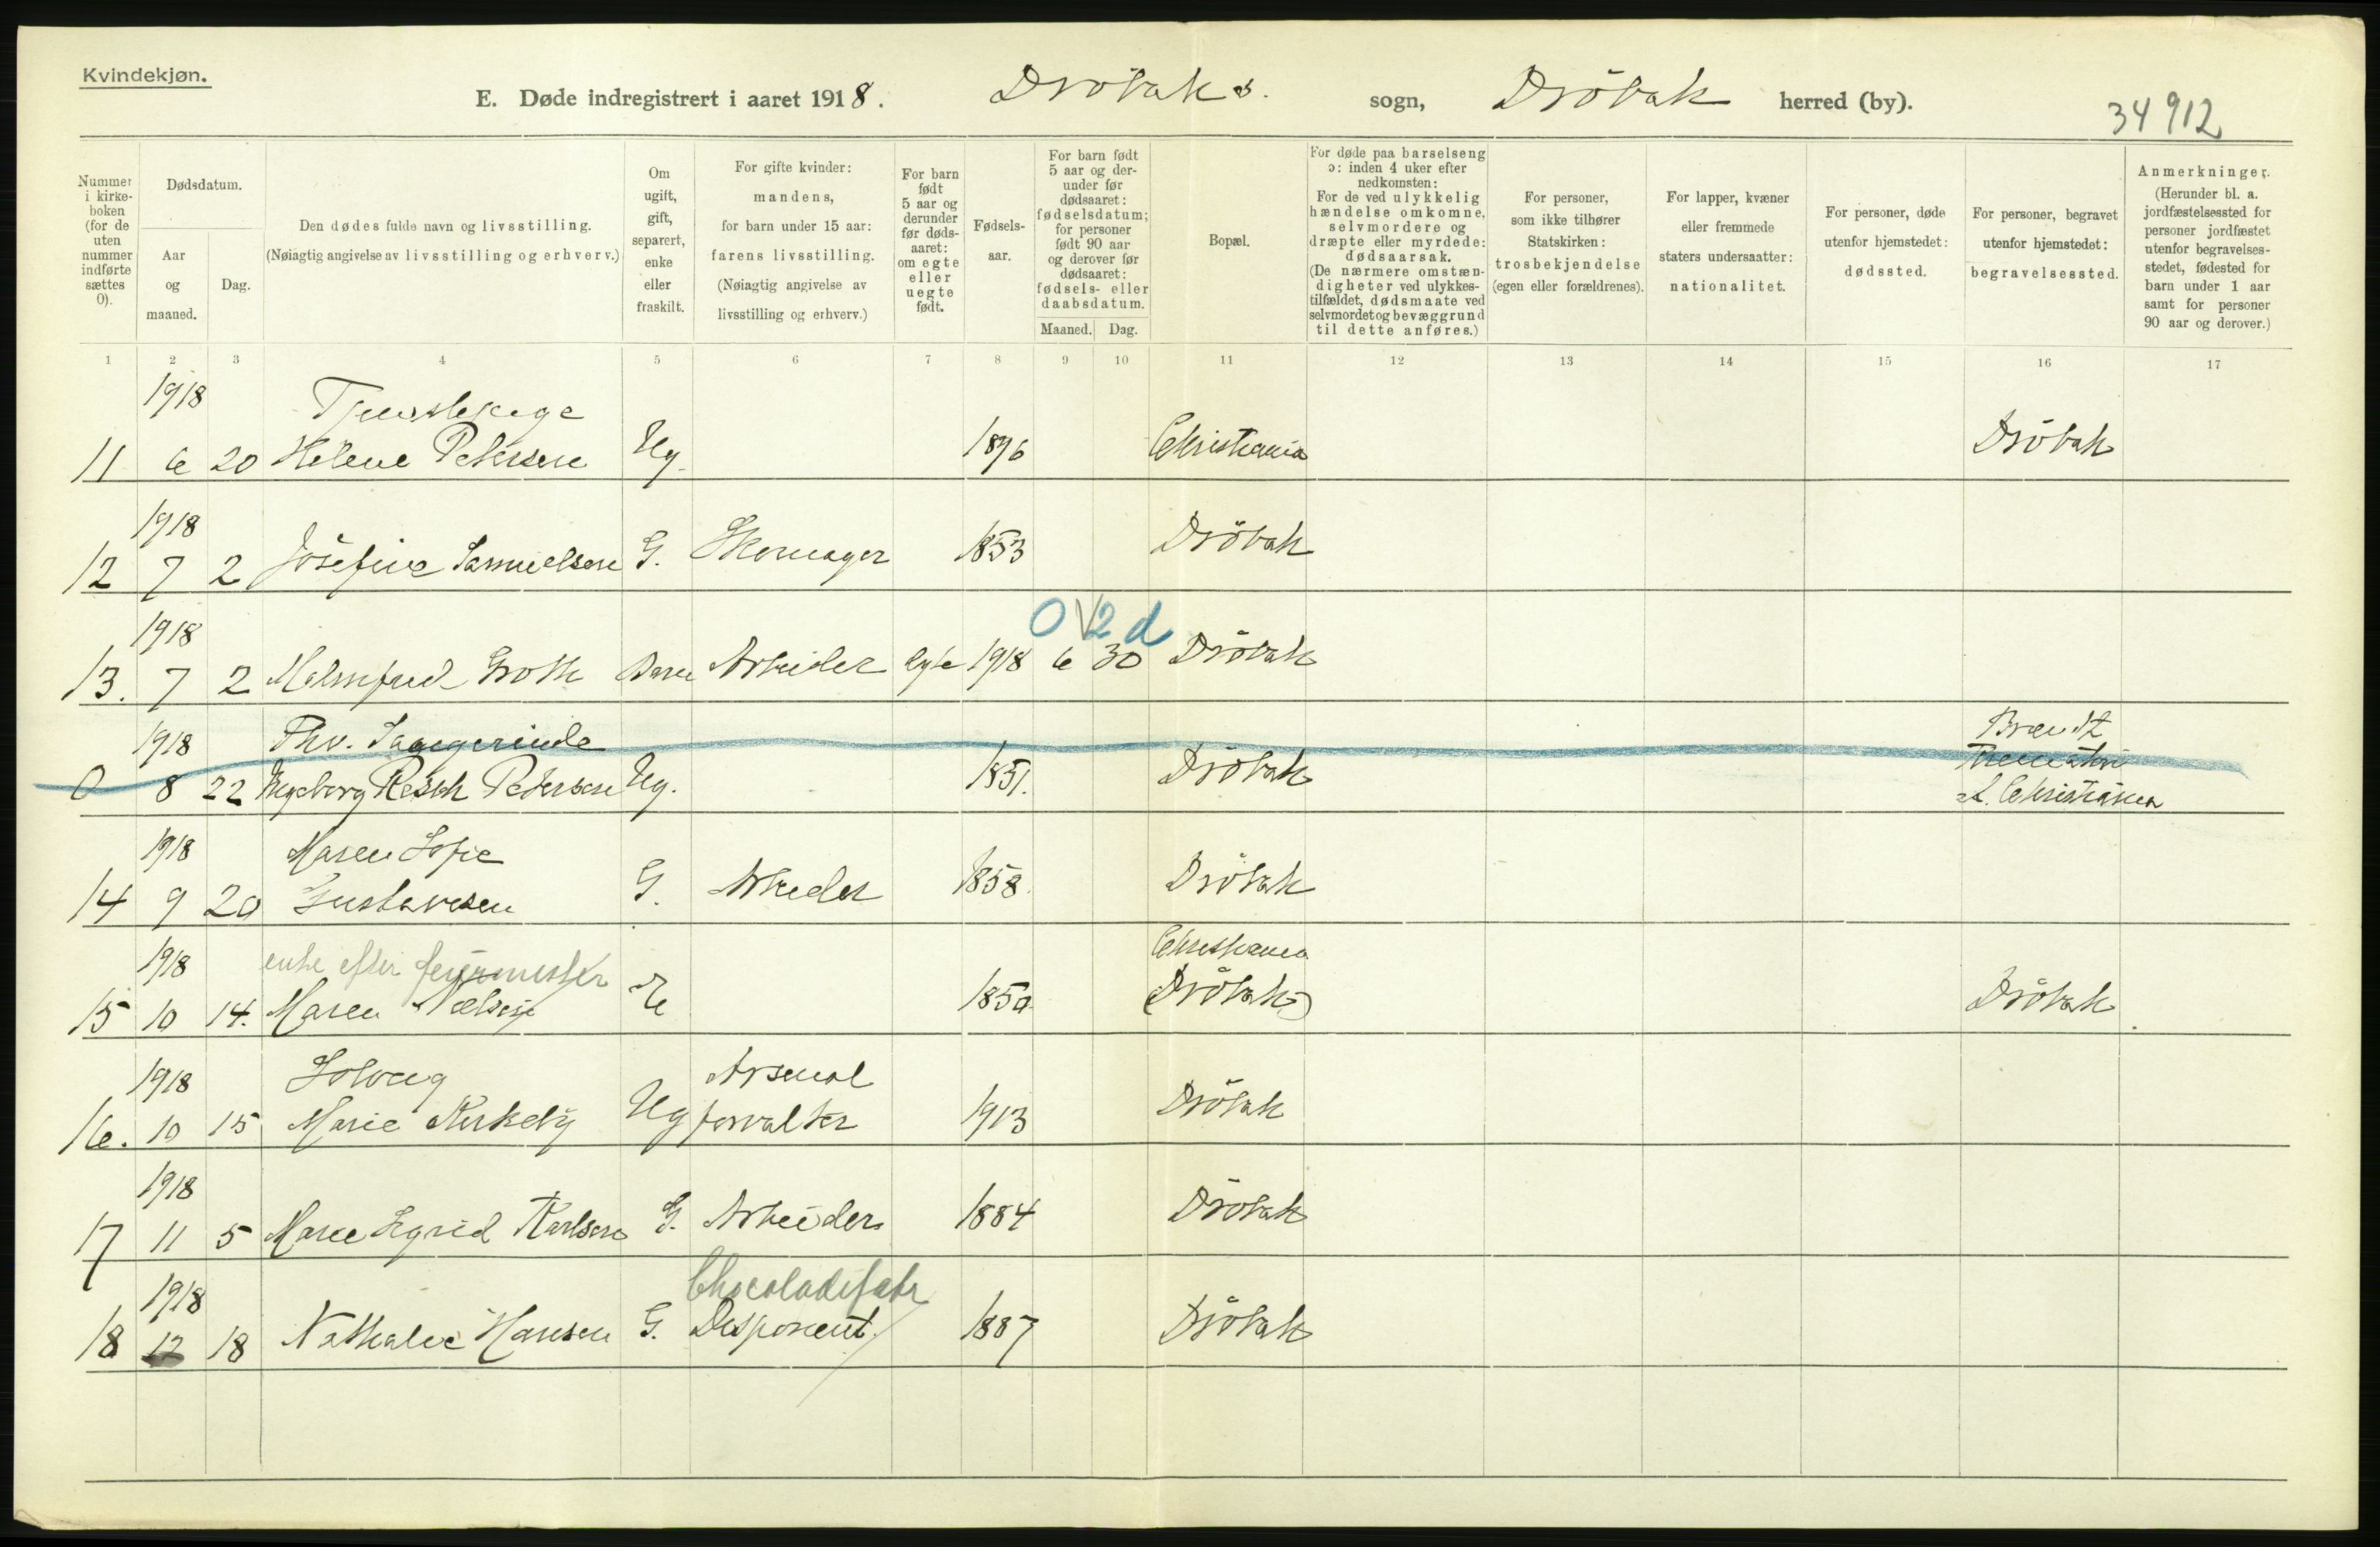 Kvindekjøn.
E. Døde indregistrert i aaret 1918. Dröbaks. sogn, Dröbak herred (by).
34912
Nummer i kirke-boken (for de uten nummer indførte sættes 0).
Dødsdatum.
Aar og maaned.
Dag.
Den dødes fulde navn og livsstilling.
(Nøiagtig angivelse av livsstilling og erhverv.)
Om ugift, gift, separert, enke eller fraskilt.
For gifte kvinder: mandens, for barn under 15 aar: farens livsstilling. (Nøiagtig angivelse av livsstilling og erhverv.)
For barn født 5 aar og derunder før døds-aaret: om egte eller uegte født.
Fødsels-aar.
For barn født 5 aar og der-under før dødsaaret: fødselsdatum; for personer født 90 aar og derover før dødsaaret: fødsels- eller daabsdatum.
Maaned. Dag.
Bopæl.
For døde paa barselseng ɔ: inden 4 uker efter nedkomsten: For de ved ulykkelig hændelse omkomne, selvmordere og dræpte eller myrdede: dødsaarsak. (De nærmere omstæn-digheter ved ulykkes-tilfældet, dødsmaate ved selvmordet og bevæggrund til dette anføres.)
For personer, som ikke tilhører Statskirken: trosbekjendelse (egen eller forældrenes).
For lapper, kvæner eller fremmede staters undersaatter: nationalitet.
For personer, døde utenfor hjemstedet: dødssted.
For personer, begravet utenfor hjemstedet: begravelsessted.
Anmerkninger. (Herunder bl. a. jordfæstelsessted for personer jordfæstet utenfor begravelses-stedet, fødested for barn under 1 aar samt for personer 90 aar og derover.)
1 2 3 4 5 6 7 8 9 10 11 12 13 14 15 16 17
1918 Tjenstepige
11 6 20 Helene Petersen Ug. 1896 Christiania Dröbak
1918
12 7 2 Josefine Samuelsen G. Skomager 1853 Dröbak
1918 0 V2 d
13. 7 2 Groth Barn Arbeider Egte 1918 6 30 Dröbak
1918 Fhv. Brændt
0 8 22 Ingeborg Resch Petersen Ug. 1851. Dröbak Krematori
i. Christiania
1918 Maren Sofie
14 9 20 Gustavesen G. Arbeider 1858. Dröbak
1918 enke efter feiermester Christiania
15 10 14. Maren Nielsen E 1850 (Dröbak) Dröbak
1918 Solveig Arsenal
16. 10 15 Marie Kirkeby Ug forvalter 1913 Dröbak
1918
17 11 5 Maren Sigrid Karlsen G. Arbeider 1884 Dröbak
1918 Chocoladefabr
18 12 18 Nathalie Hansen G. Disponent. 1887 Dröbak